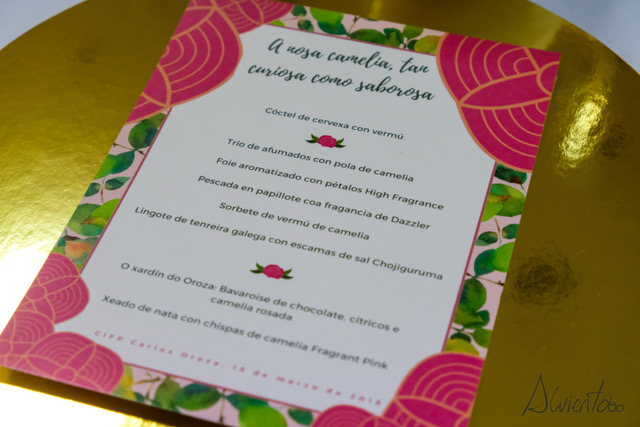 A nosa camelia, tan
curiosa como saborosa
Cóctel de cervexa con vermú
Trío de afumados con pola de camelia
Foie aromatizado con pétalos High Fragrance
Pescada en papillote coa fragancia de Dazzler
Sorbete de vermú de camelia
Lingote de tenreira galega con escamas de sal Chojiguruma
O xardín do Oroza: Bavaroise de chocolate, cítricos e
camelia rosada
Xeado de nata con chispas de camelia Fragrant Pink
CIFP Carlos Oroza, 15 de marzo de 2018